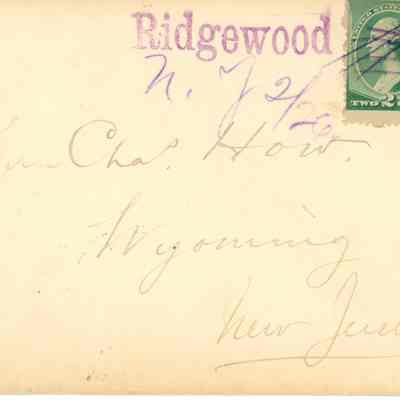 Ridgewood
N. J 2/26
TWO 2
Chas. How.
Wyoming
New Jers